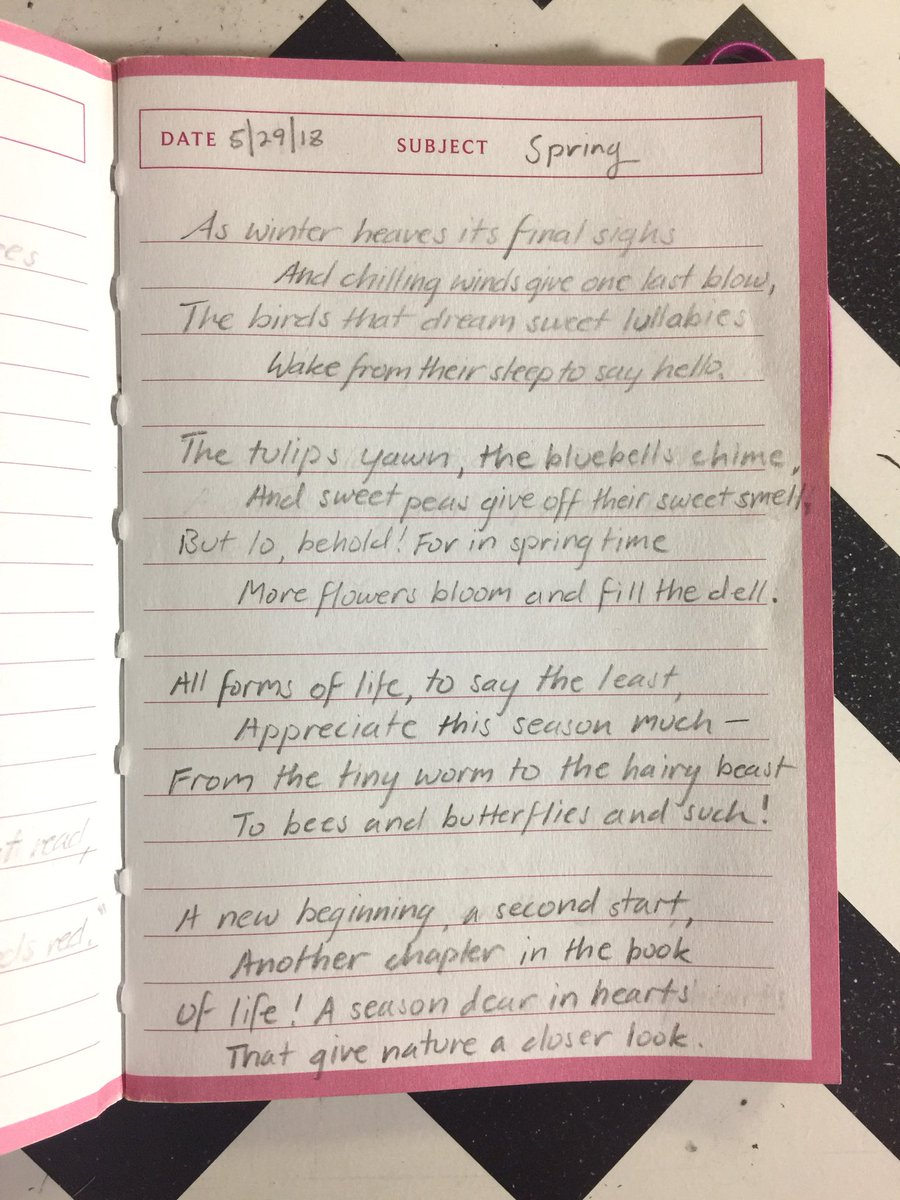 DATE 5/29/18 SUBJECT Spring
As winter heaves its final sighs
And chilling winds give one last blow,
The birds that dream sweet lullabies
Wake from their sleep to say hello.
The tulips yawn, the bluebells chime,
And sweet peas give off their sweet smell;
But lo, behold! For in springtime
More flowers bloom and fill the dell.
All forms of life, to say the least,
Appreciate this season much —
From the tiny worm to the hairy beast
To bees and butterflies and such!
A new beginning, a second start,
Another chapter in the book
Of life! A season dear in hearts
That give nature a closer look.
read,
red."